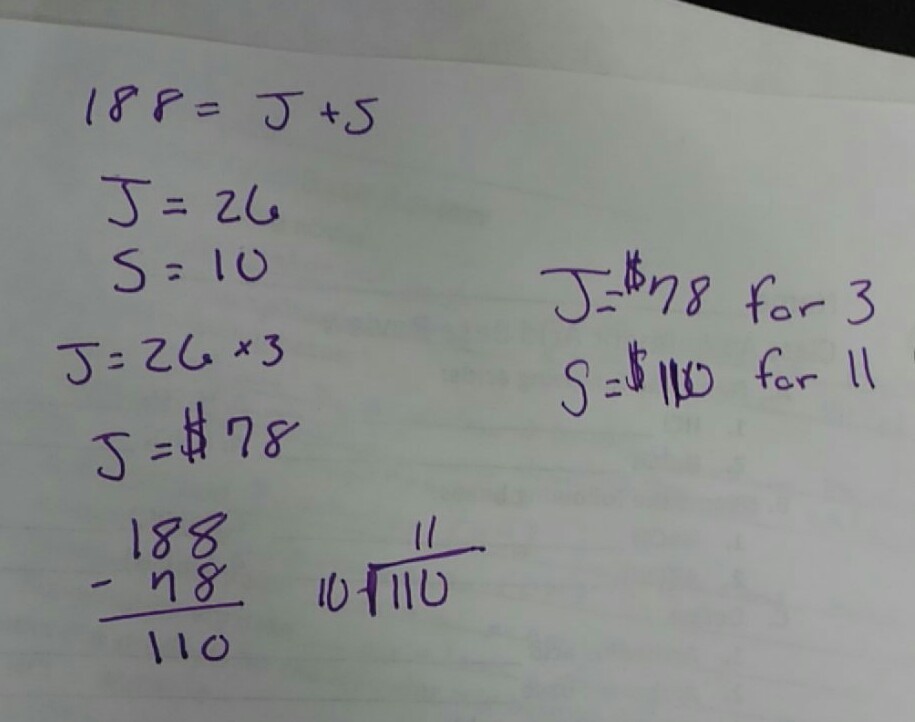 188 = J + S
J = 26
S = 10
J = 26 × 3
J = $78
188
- 78
110
11
10 110
J = $78 for 3
S = $110 for 11